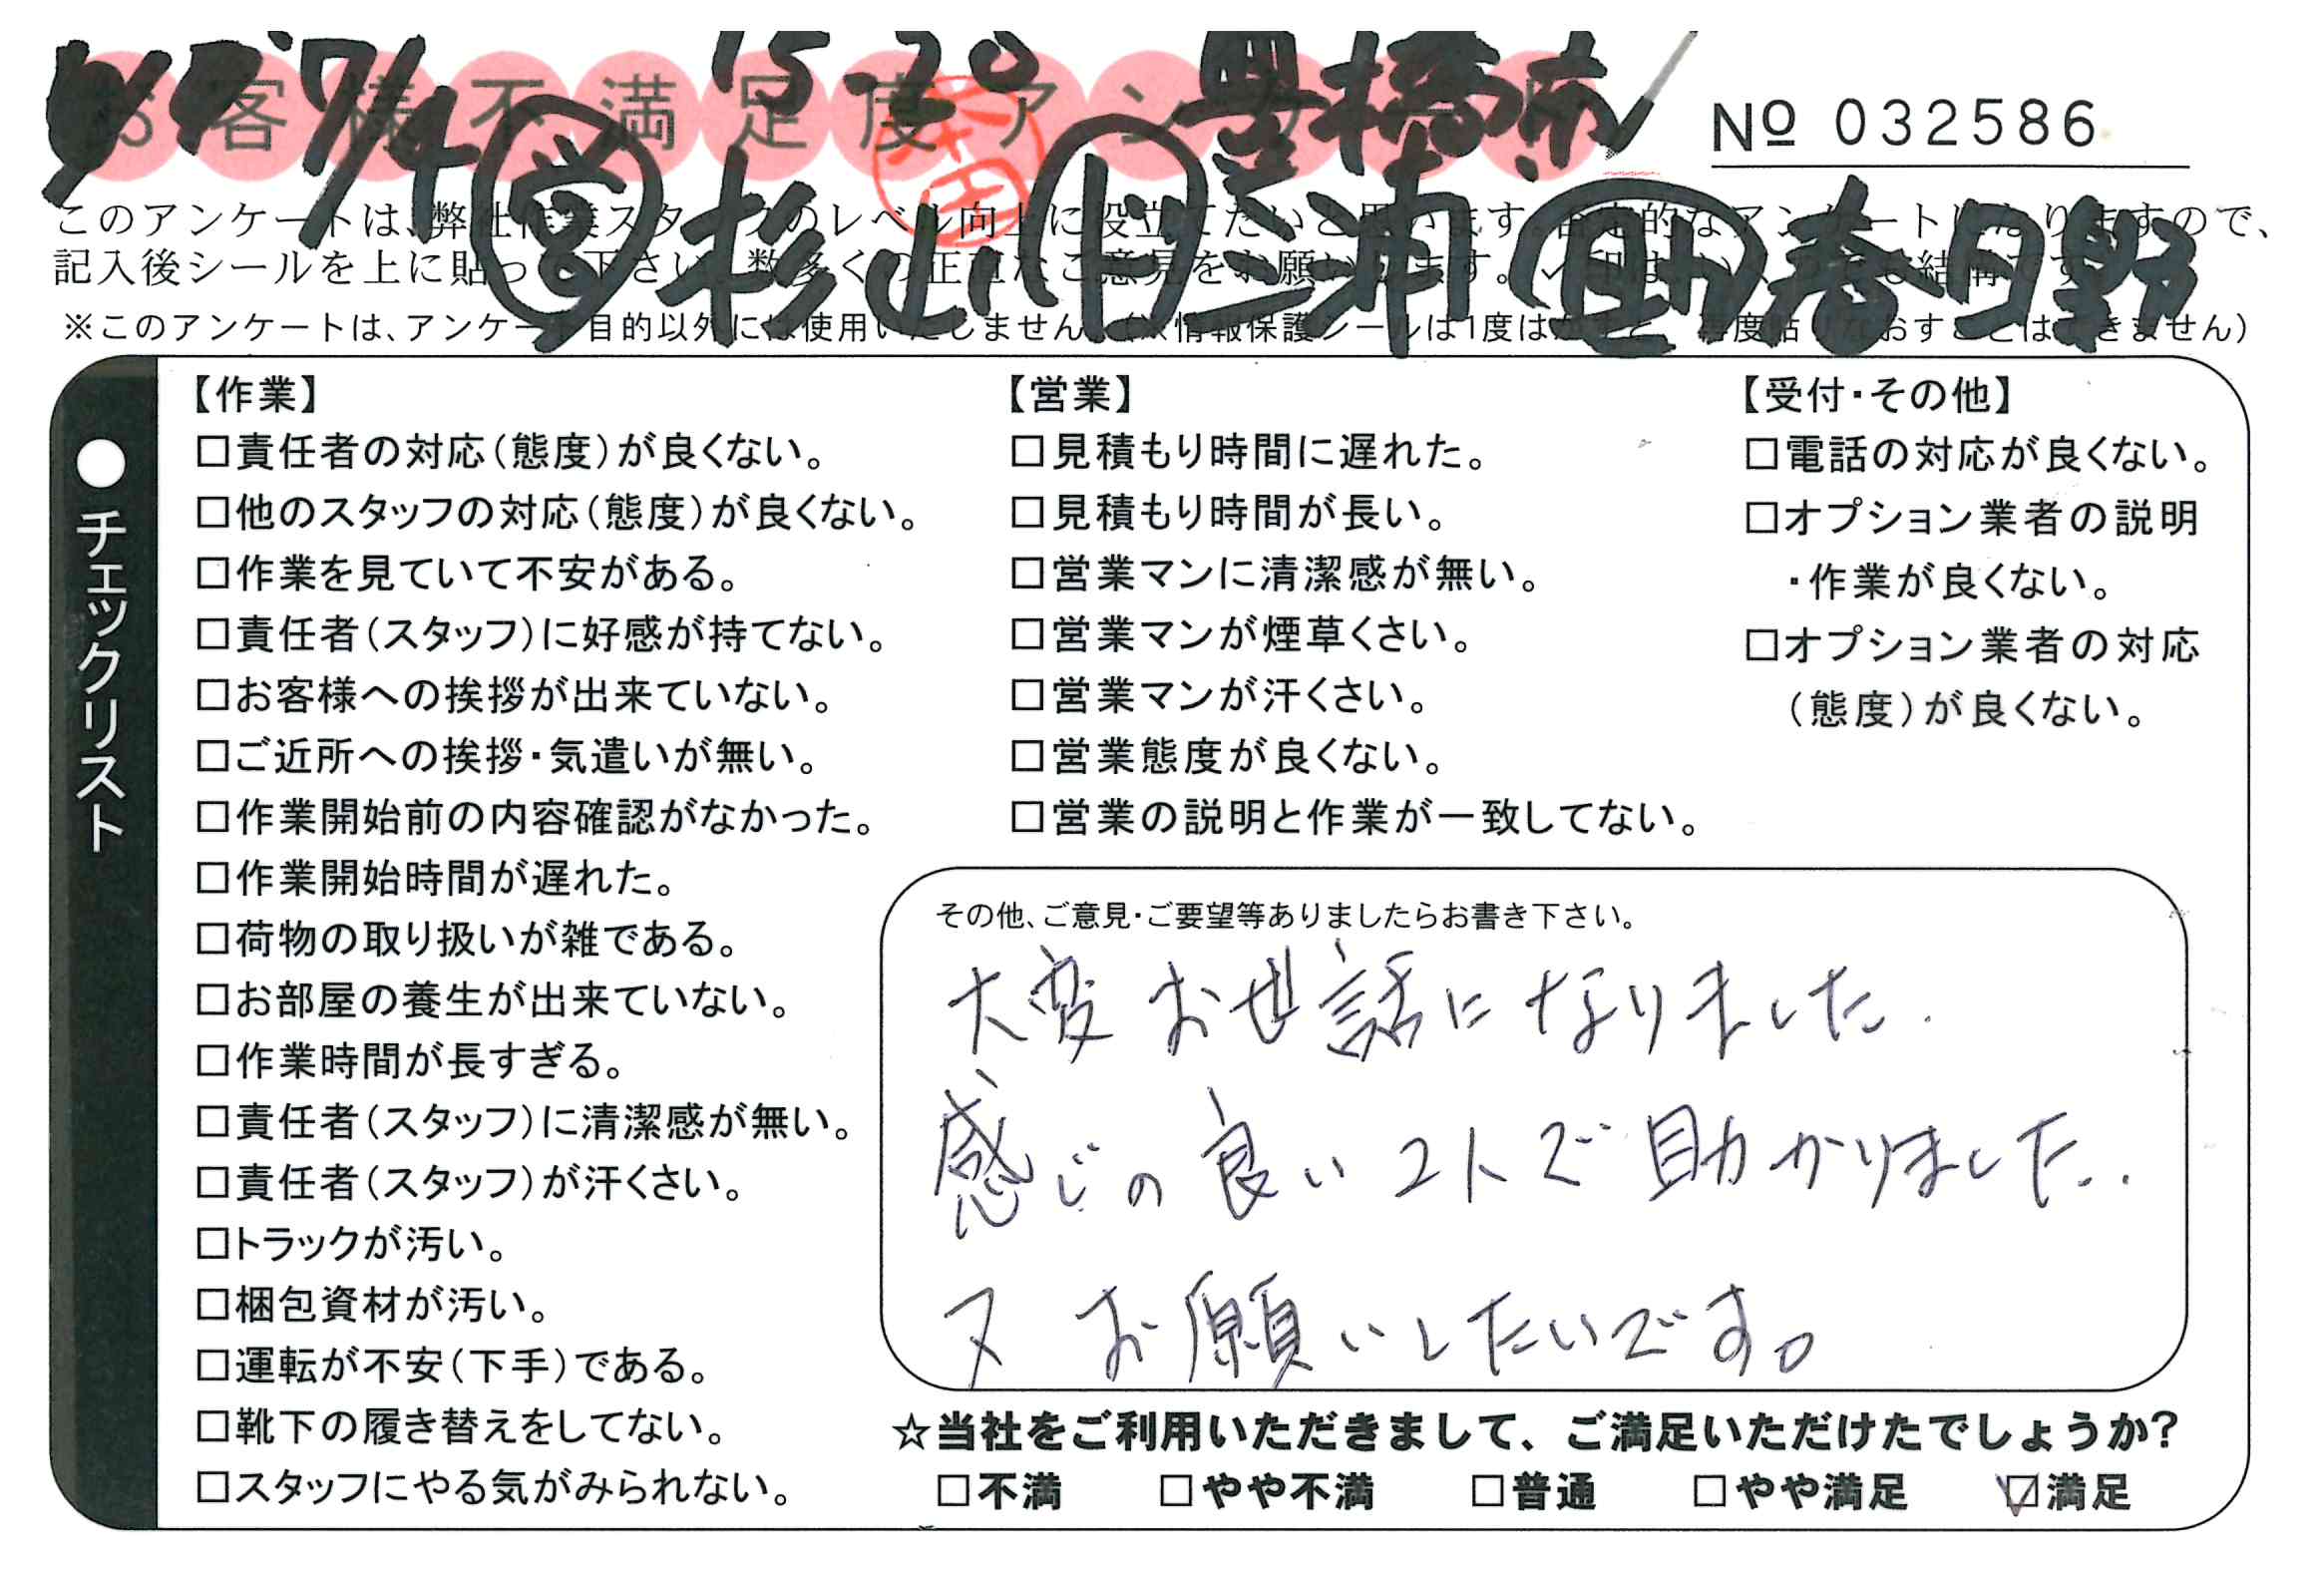 7/4 15-20 豊橋市
お客様不満足度アンケート
№ 032586
営 杉山 ド 三浦 助 春日野
このアンケートは、弊社作業スタッフのレベル向上に役立てたいと思います。否定的なアンケートになりますので、
記入後シールを上に貼って下さい。数多くの正直なご意見をお願いします。
※このアンケートは、アンケート目的以外には使用いたしません。(※情報保護シールは1度はがすと、再度貼りなおすことはできません)
●チェックリスト
【作業】
□責任者の対応(態度)が良くない。
□他のスタッフの対応(態度)が良くない。
□作業を見ていて不安がある。
□責任者(スタッフ)に好感が持てない。
□お客様への挨拶が出来ていない。
□ご近所への挨拶・気遣いが無い。
□作業開始前の内容確認がなかった。
□作業開始時間が遅れた。
□荷物の取り扱いが雑である。
□お部屋の養生が出来ていない。
□作業時間が長すぎる。
□責任者(スタッフ)に清潔感が無い。
□責任者(スタッフ)が汗くさい。
□トラックが汚い。
□梱包資材が汚い。
□運転が不安(下手)である。
□靴下の履き替えをしてない。
□スタッフにやる気がみられない。
【営業】
□見積もり時間に遅れた。
□見積もり時間が長い。
□営業マンに清潔感が無い。
□営業マンが煙草くさい。
□営業マンが汗くさい。
□営業態度が良くない。
□営業の説明と作業が一致してない。
【受付・その他】
□電話の対応が良くない。
□オプション業者の説明
・作業が良くない。
□オプション業者の対応
(態度)が良くない。
その他、ご意見・ご要望等ありましたらお書き下さい。
大変お世話になりました.
感じの良い2人で助かりました..
又お願いしたいです。
☆当社をご利用いただきまして、ご満足いただけたでしょうか?
□不満 □やや不満 □普通 □やや満足 ☑満足